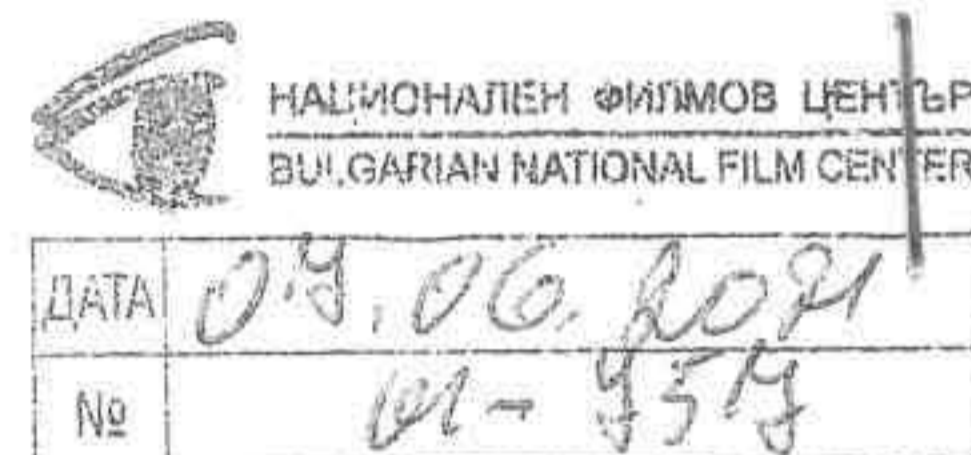 НАЦИОНАЛЕН ФИЛМОВ ЦЕНТЪР
BULGARIAN NATIONAL FILM CENTER
ДАТА 07.06.2021
№